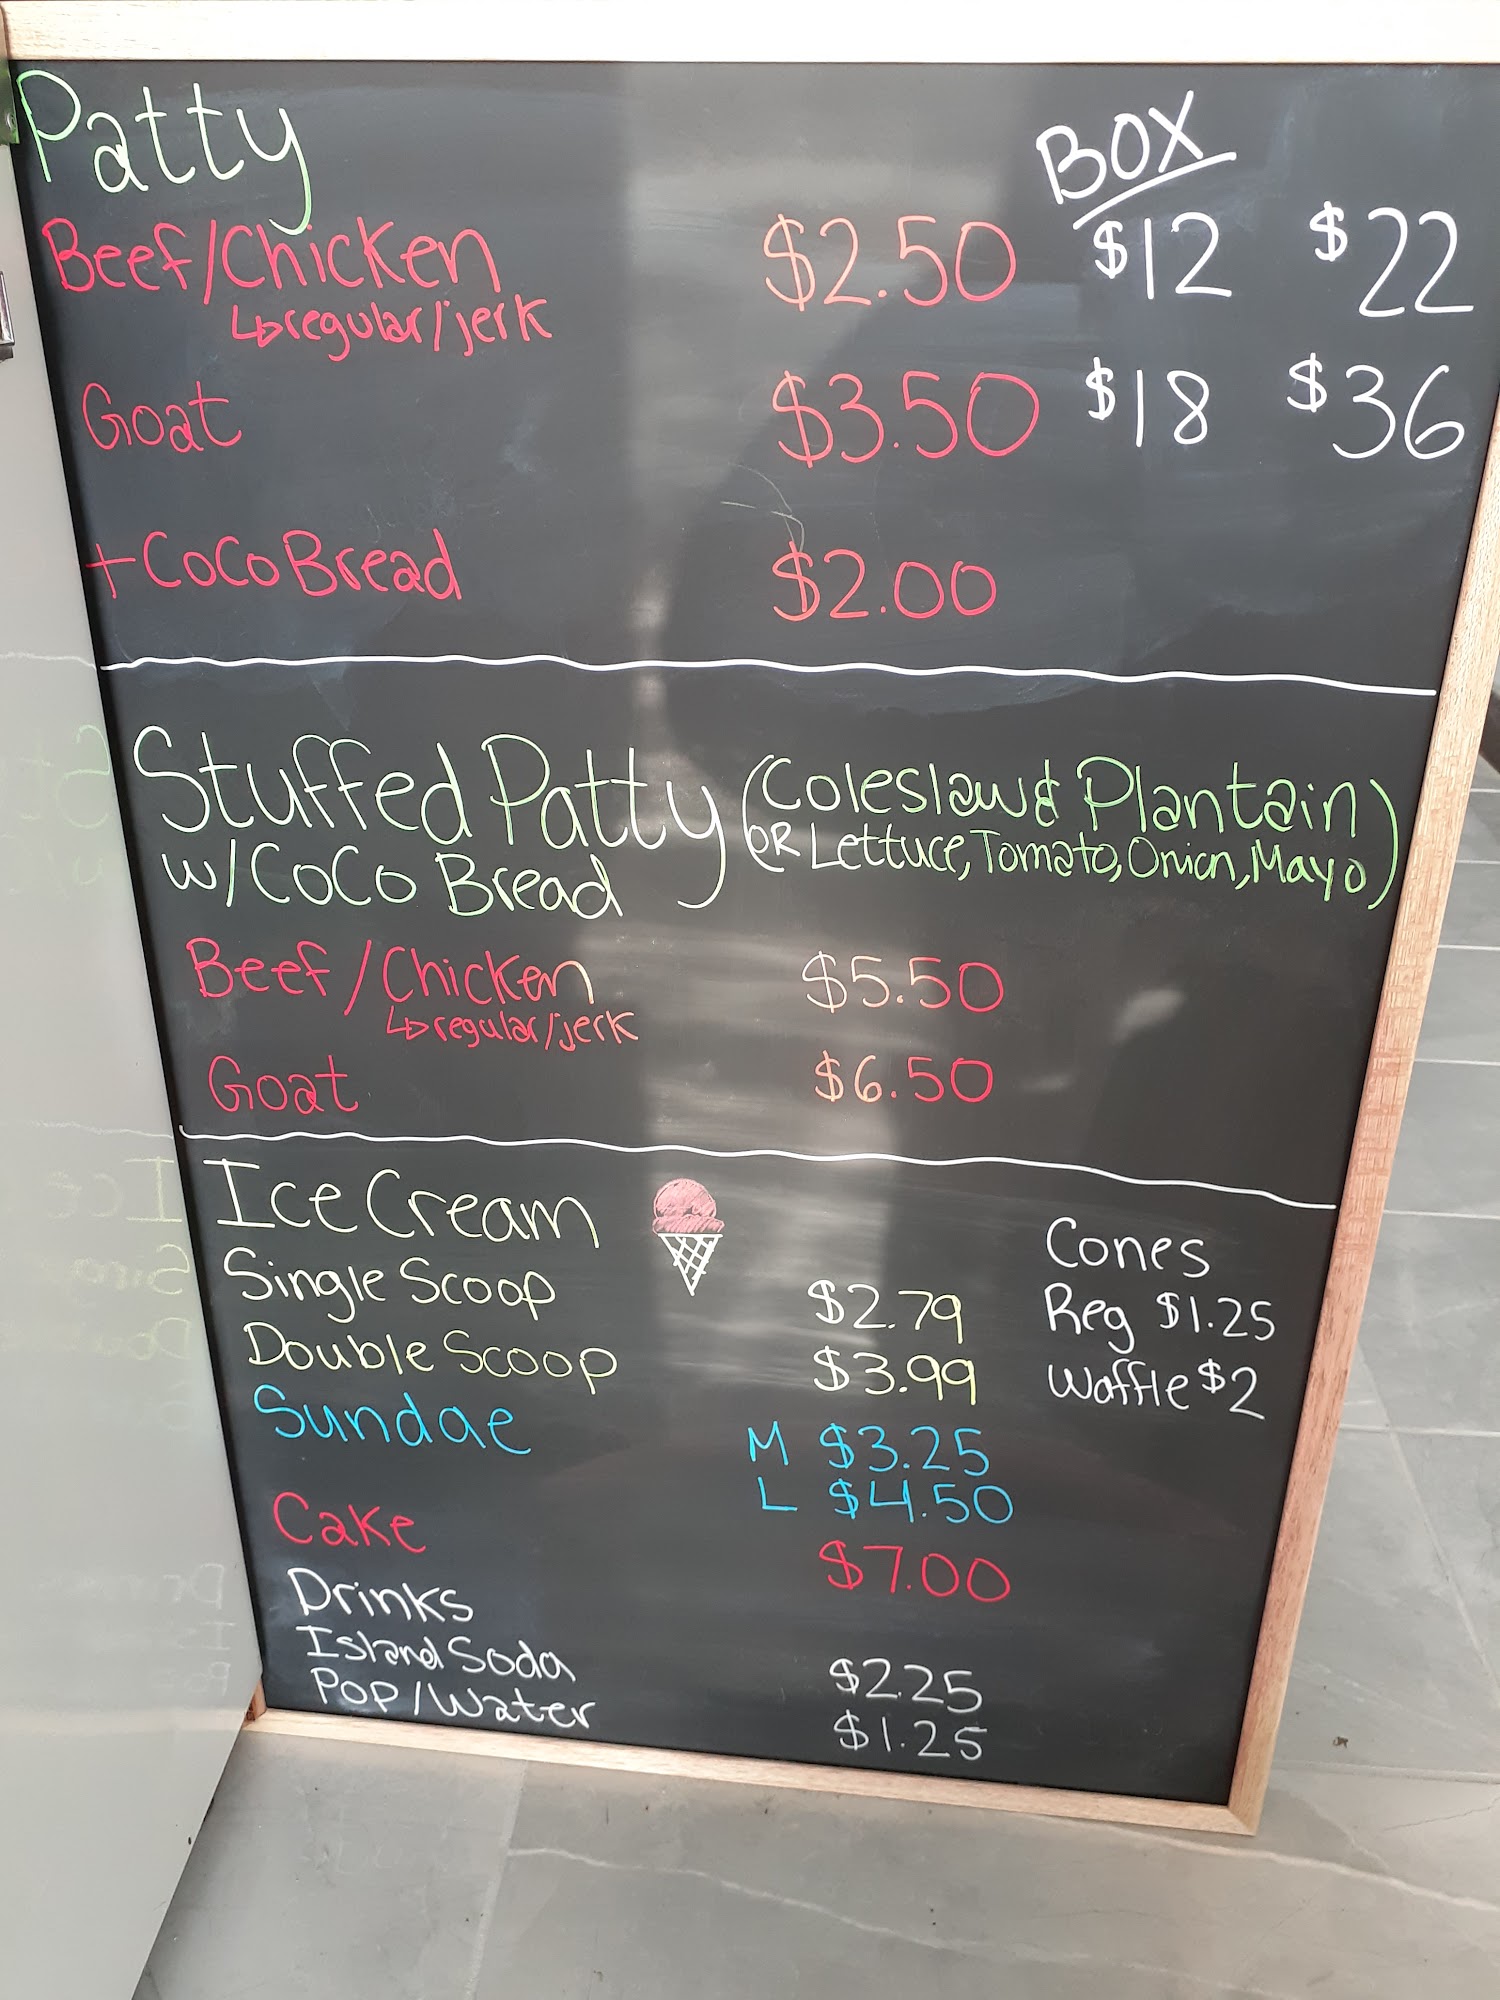 Patty
BOX
Beef/Chicken $2.50 $12 $22
↳regular/jerk
Goat $3.50 $18 $36
+CoCo Bread $2.00
Stuffed Patty (Coleslaw & Plantain
w/CoCo Bread OR Lettuce, Tomato, Onion, Mayo)
Beef/Chicken $5.50
↳regular/jerk
Goat $6.50
Ice Cream
Cones
Single Scoop $2.79 Reg $1.25
Double Scoop $3.99 Waffle $2
Sundae M $3.25
L $4.50
Cake $7.00
Drinks
Island Soda $2.25
Pop/Water $1.25